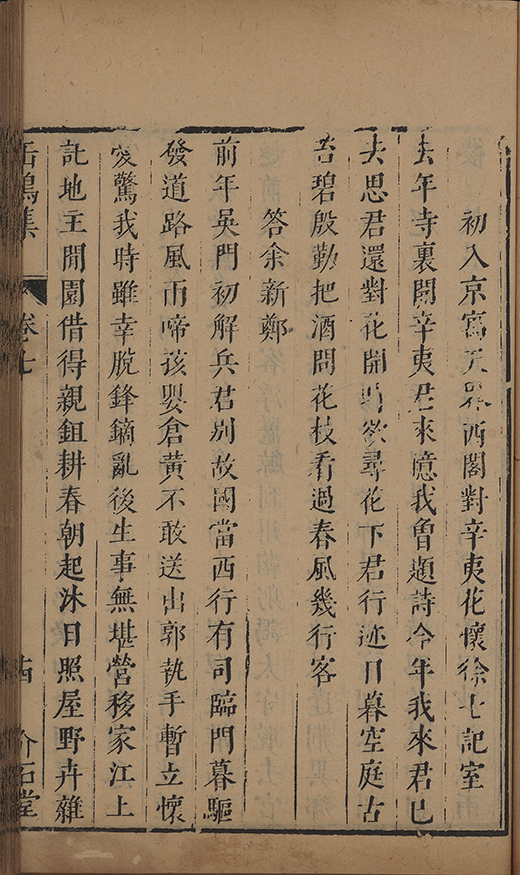 初入京寓天界西閣對辛夷花懷徐七記室
去年寺裏開辛夷君來憶我曾題詩今年我來君已
去思君還對花開時欲尋花下君行迹日暮空庭古
苔碧殷勤把酒問花枝看過春風幾行客
答余新鄭
前年吳門初解兵君別故國當西行有司臨門暮驅
發道路風雨啼孩嬰倉黃不敢送出郭執手暫立懷
驚我時雖幸脫鋒鏑亂後生事無堪營移家江上
託地主閒園借得親鉏耕春朝起沐日照屋野卉雜
缶鳴集 卷七 介石堂